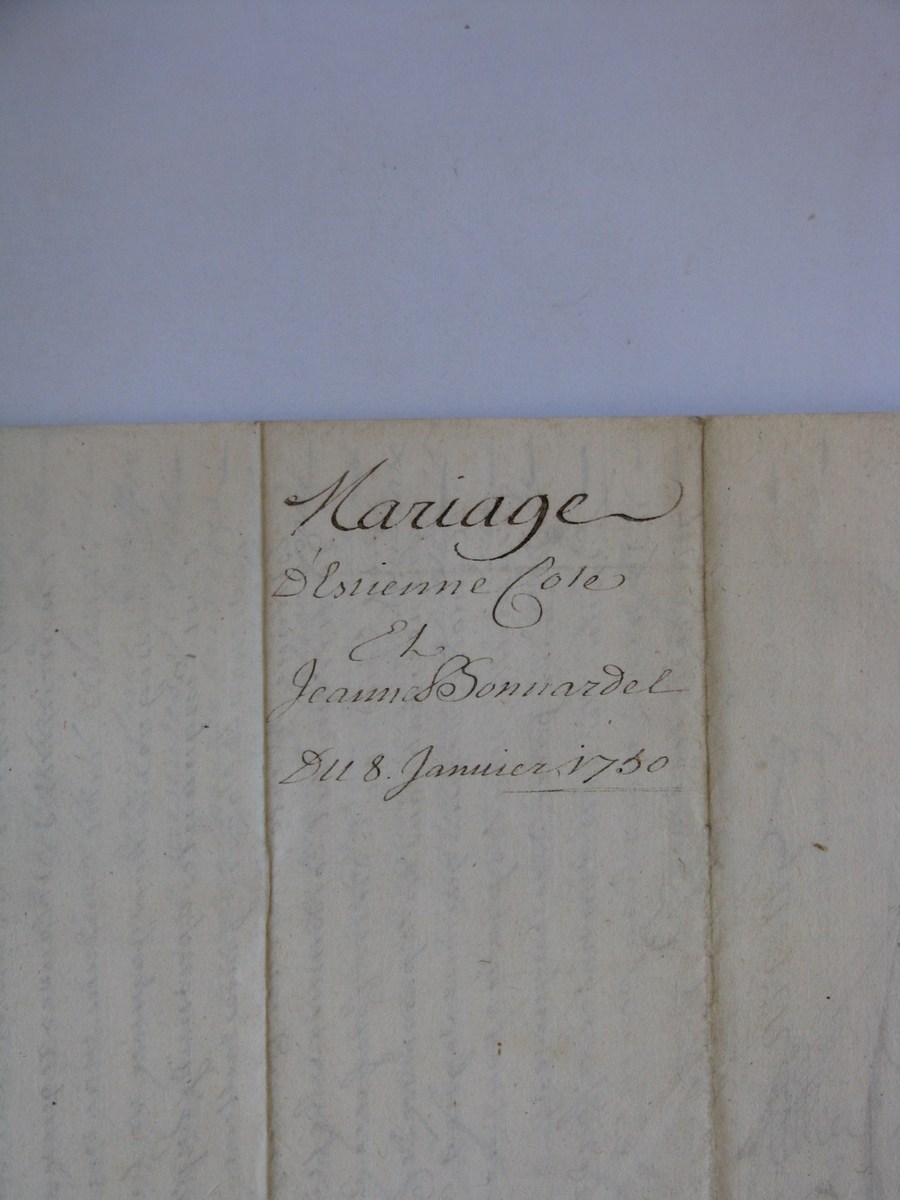 Mariage
D'Estienne Cote
Et
Jeanne Bonnardel
Du 8. Janvier 1750